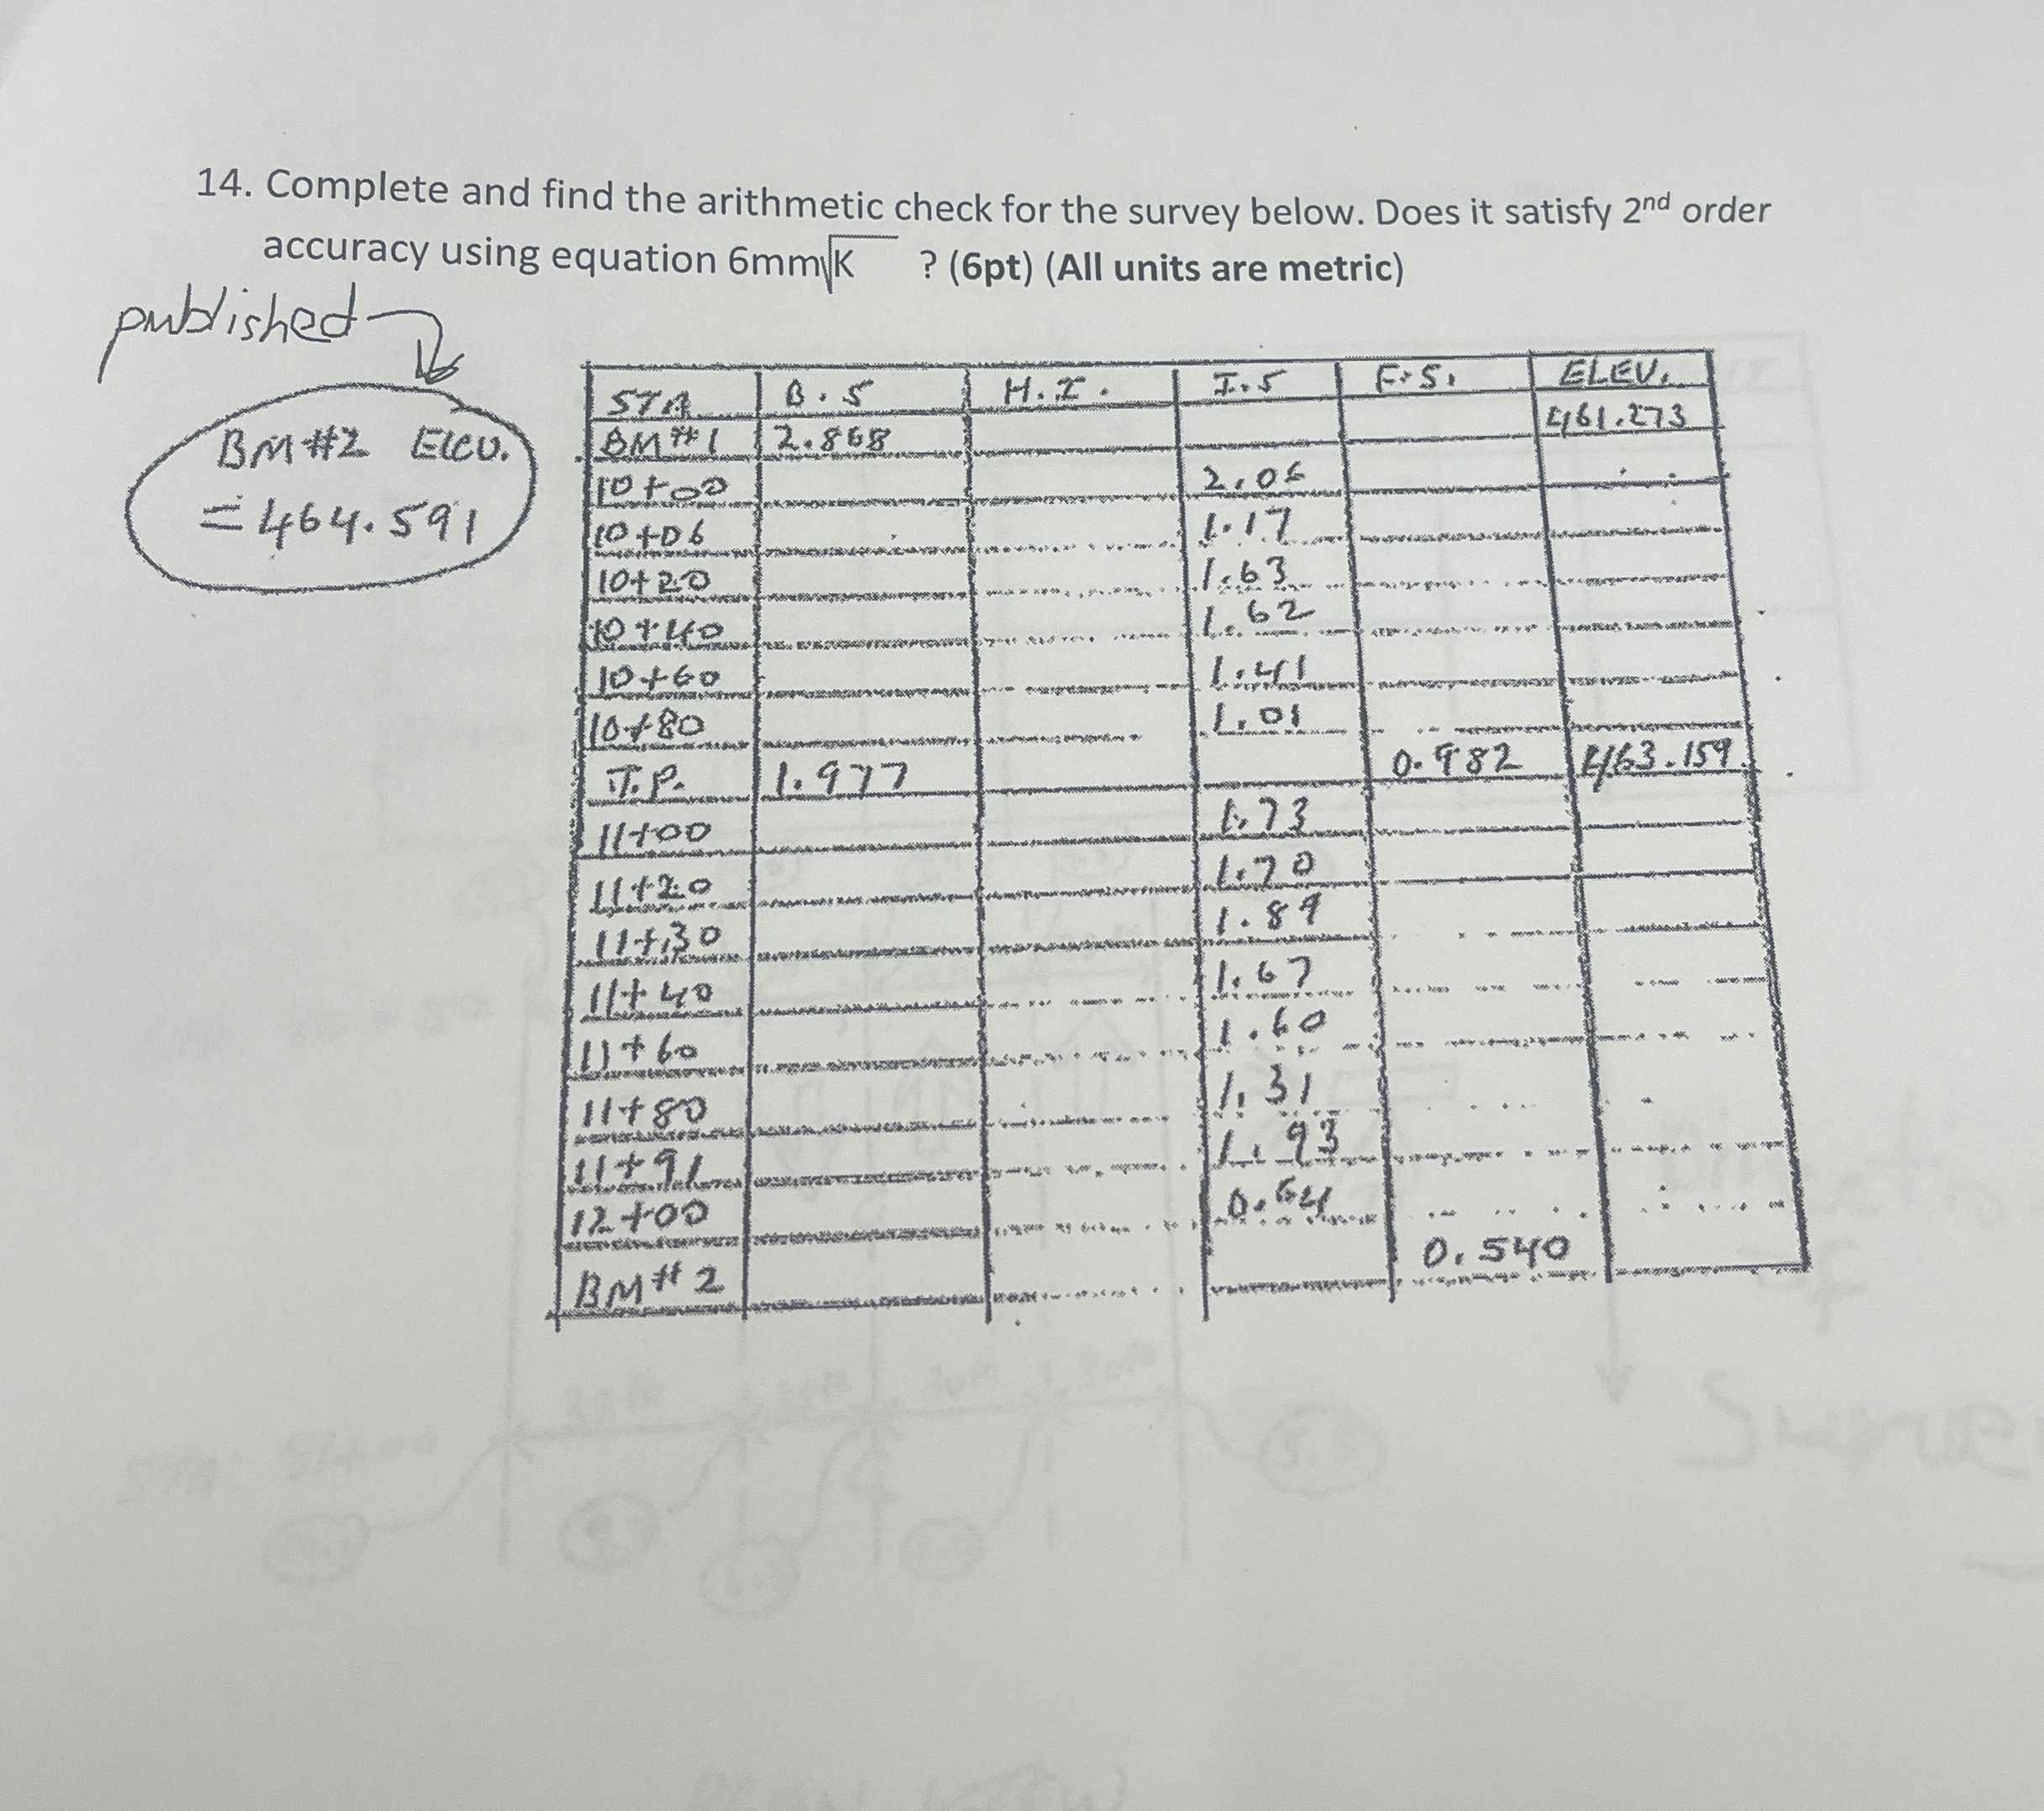 14. Complete and find the arithmetic check for the survey below. Does it satisfy 2nd order
accuracy using equation 6mm√K ? (6pt) (All units are metric)
published
BM #2 Elev.
= 464.591
STA B.S H.I. I.S F.S. ELEV.
BM #1 2.868 461.273
10+00 2.06
10+06 1.17
10+20 1.63
10+40 1.62
10+60 1.41
10+80 1.01
T.P. 1.977 0.982 463.159
11+00 1.73
11+20 1.70
11+30 1.89
11+40 1.67
11+60 1.60
11+80 1.31
11+91 1.93
12+00 0.64
BM #2 0.540